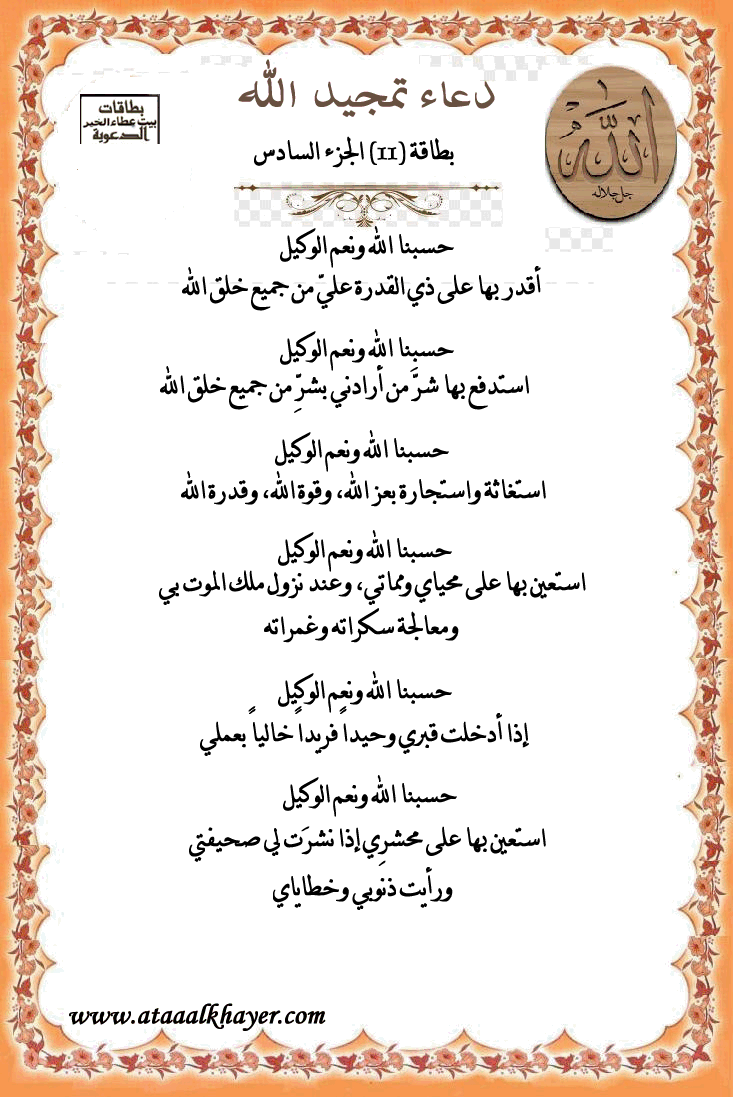 دعاء تمجيد الله
بطاقات
بيت عطاء الخير
الدعوية
بطاقة (11) الجزء السادس
الله
جل جلاله
حسبنا الله ونعم الوكيل
أقدر بها على ذي القدرة عليّ من جميع خلق الله
حسبنا الله ونعم الوكيل
استدفع بها شرَّ من أرادني بشرٍّ من جميع خلق الله
حسبنا الله ونعم الوكيل
استغاثة واستجارة بعز الله، وقوة الله، وقدرة الله
حسبنا الله ونعم الوكيل
استعين بها على محياي ومماتي، وعند نزول ملك الموت بي
ومعالجة سكراته وغمراته
حسبنا الله ونعم الوكيل
إذا أدخلت قبري وحيداً فريداً خالياً بعملي
حسبنا الله ونعم الوكيل
استعين بها على محشري إذا نشرَت لي صحيفتي
ورأيت ذنوبي وخطاياي
www.ataaalkhayer.com